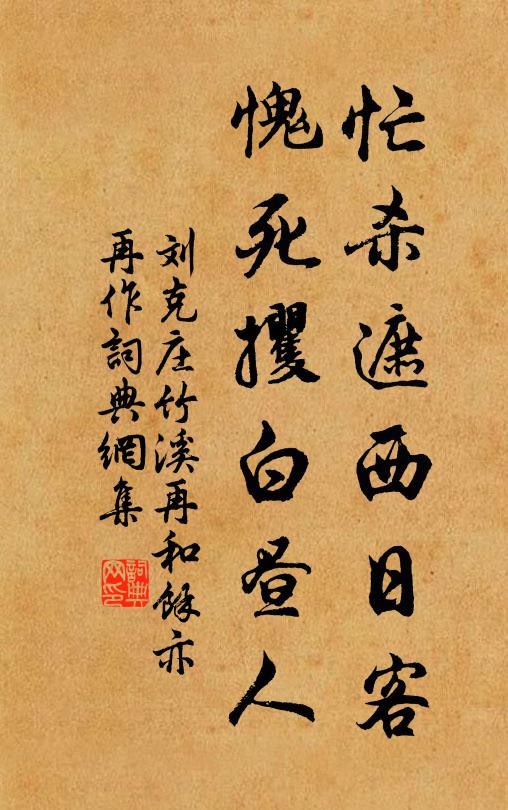 忙杀遮西日客
愧死攫白昼人
刘克庄竹溪再和餘亦
再作詞典網集
詞典網印